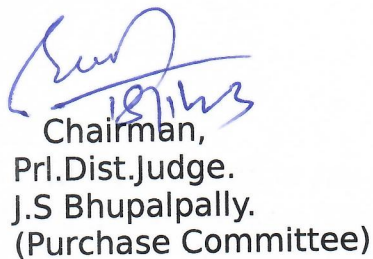 Chairman,
Prl.Dist.Judge.
J.S Bhupalpally.
(Purchase Committee)